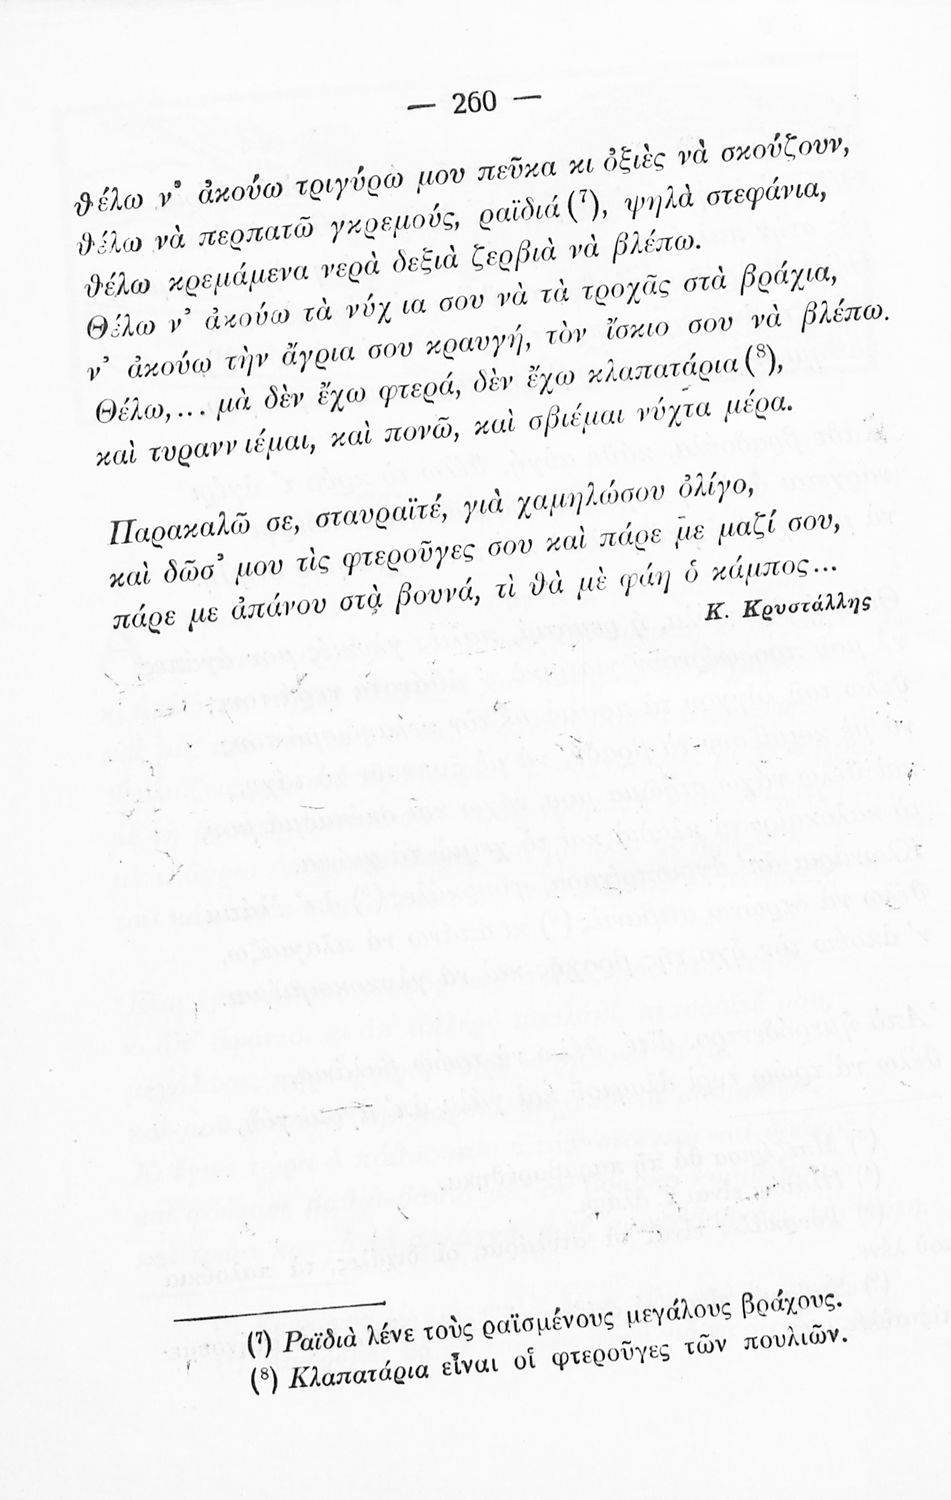 — 260 —
θέλω ν' ἀκούω τριγύρω μου πεῦκα κι ὀξιὲς νὰ σκούζουν,
θέλω νὰ περπατῶ γκρεμούς, ραϊδιά (⁷), ψηλὰ στεφάνια,
θέλω κρεμάμενα νερὰ δεξιὰ ζερβιὰ νὰ βλέπω.
Θέλω ν' ἀκούω τὰ νύχια σου νὰ τὰ τροχᾶς στὰ βράχια,
ν' ἀκούω τὴν ἄγρια σου κραυγή, τὸν ἴσκιο σου νὰ βλέπω.
Θέλω,... μὰ δὲν ἔχω φτερά, δὲν ἔχω κλαπατάρια (⁸),
καὶ τυραννιέμαι, καὶ πονῶ, καὶ σβιέμαι νύχτα μέρα.
Παρακαλῶ σε, σταυραϊτέ, γιὰ χαμηλώσου ὀλίγο,
καὶ δῶσ' μου τὶς φτεροῦγες σου καὶ πάρε με μαζί σου,
πάρε με ἀπάνου στὰ βουνά, τὶ θὰ μὲ φάη ὁ κάμπος...
Κ. Κρυστάλλης
(⁷) Ραϊδιὰ λένε τοὺς ραϊσμένους μεγάλους βράχους.
(⁸) Κλαπατάρια εἶναι οἱ φτεροῦγες τῶν πουλιῶν.